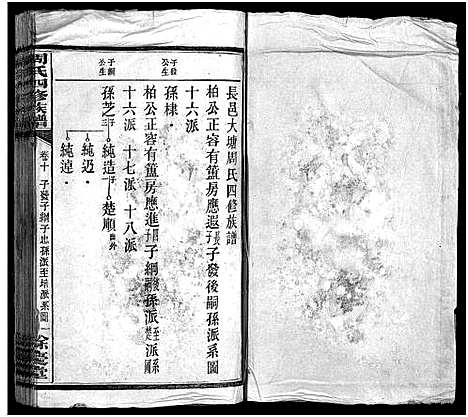 長邑大塘周氏四修族譜
柏公正容有簠房應遐子長子發後嗣孫派系圖
十六派
子發公生
孫棣．
柏公正容有簠房應進子子綱後嗣孫派至楚派系圖
十六派　十七派　十八派
子綱公生
孫芝子純造子楚順出外
純迈．
純逴．
周氏四修族譜
卷十　子發子綱子忠孫派至培派系圖　一
餘慶堂